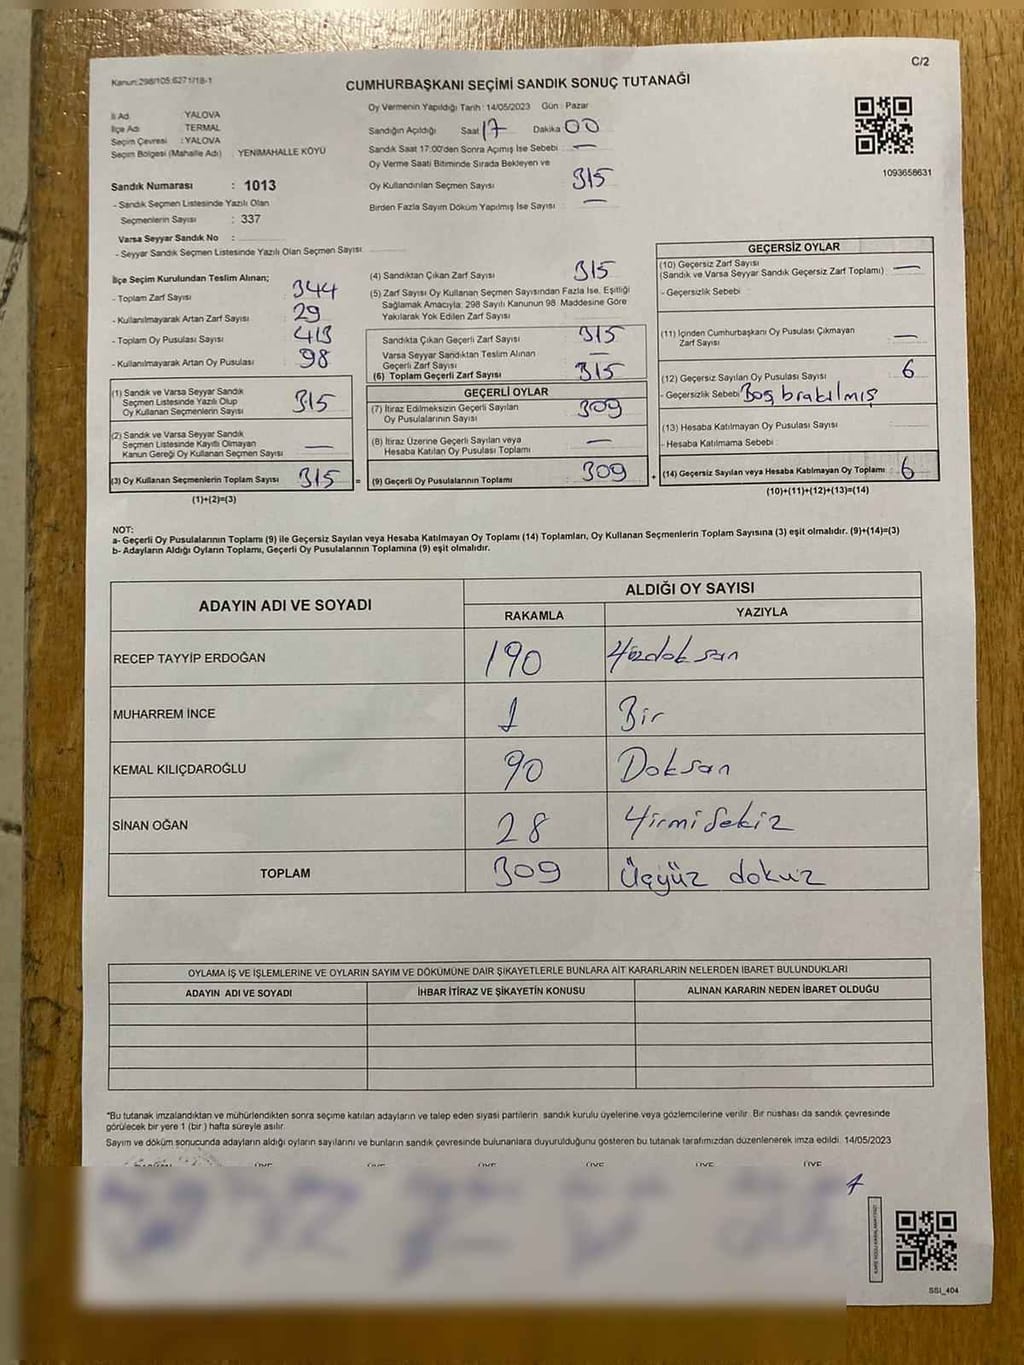 C/2
Kanun:298/105:6271/18-1
CUMHURBAŞKANI SEÇİMİ SANDIK SONUÇ TUTANAĞI
İl Adı YALOVA
İlçe Adı TERMAL
Seçim Çevresi : YALOVA
Seçim Bölgesi (Mahalle Adı) YENİMAHALLE KÖYÜ
Sandık Numarası : 1013
- Sandık Seçmen Listesinde Yazılı Olan
Seçmenlerin Sayısı : 337
Varsa Seyyar Sandık No :
- Seyyar Sandık Seçmen Listesinde Yazılı Olan Seçmen Sayısı
Oy Vermenin Yapıldığı Tarih : 14/05/2023 Gün : Pazar
Sandığın Açıldığı Saat 17 Dakika 00
Sandık Saat 17:00'den Sonra Açımış İse Sebebi : —
Oy Verme Saati Bitiminde Sırada Bekleyen ve
Oy Kullandırılan Seçmen Sayısı 315
Birden Fazla Sayım Döküm Yapılmış İse Sayısı : —
1093658631
İlçe Seçim Kurulundan Teslim Alınan;
- Toplam Zarf Sayısı 344
- Kullanılmayarak Artan Zarf Sayısı 29
- Toplam Oy Pusulası Sayısı 413
- Kullanılmayarak Artan Oy Pusulası 98
(1) Sandık ve Varsa Seyyar Sandık
Seçmen Listesinde Yazılı Olup
Oy Kullanan Seçmenlerin Sayısı 315
(2) Sandık ve Varsa Seyyar Sandık
Seçmen Listesinde Kayıtlı Olmayan
Kanun Gereği Oy Kullanan Seçmen Sayısı —
(3) Oy Kullanan Seçmenlerin Toplam Sayısı 315 =
(1)+(2)=(3)
(4) Sandıktan Çıkan Zarf Sayısı 315
(5) Zarf Sayısı Oy Kullanan Seçmen Sayısından Fazla İse, Eşitliği
Sağlamak Amacıyla, 298 Sayılı Kanunun 98. Maddesine Göre
Yakılarak Yok Edilen Zarf Sayısı
Sandıkta Çıkan Geçerli Zarf Sayısı 315
Varsa Seyyar Sandıktan Teslim Alınan
Geçerli Zarf Sayısı —
(6) Toplam Geçerli Zarf Sayısı 315
GEÇERLİ OYLAR
(7) İtiraz Edilmeksizin Geçerli Sayılan
Oy Pusulalarının Sayısı 309
(8) İtiraz Üzerine Geçerli Sayılan veya
Hesaba Katılan Oy Pusulası Toplamı —
(9) Geçerli Oy Pusulalarının Toplamı : 309 +
GEÇERSİZ OYLAR
(10) Geçersiz Zarf Sayısı
(Sandık ve Varsa Seyyar Sandık Geçersiz Zarf Toplamı) —
- Geçersizlik Sebebi
(11) İçinden Cumhurbaşkanı Oy Pusulası Çıkmayan
Zarf Sayısı —
(12) Geçersiz Sayılan Oy Pusulası Sayısı 6
- Geçersizlik Sebebi Boş brakılmış
(13) Hesaba Katılmayan Oy Pusulası Sayısı
- Hesaba Katılmama Sebebi
(14) Geçersiz Sayılan veya Hesaba Katılmayan Oy Toplamı : 6
(10)+(11)+(12)+(13)=(14)
NOT:
a- Geçerli Oy Pusulalarının Toplamı (9) ile Geçersiz Sayılan veya Hesaba Katılmayan Oy Toplamı (14) Toplamları, Oy Kullanan Seçmenlerin Toplam Sayısına (3) eşit olmalıdır. (9)+(14)=(3)
b- Adayların Aldığı Oyların Toplamı, Geçerli Oy Pusulalarının Toplamına (9) eşit olmalıdır.
ADAYIN ADI VE SOYADI ALDIĞI OY SAYISI
RAKAMLA YAZIYLA
RECEP TAYYİP ERDOĞAN 190 Yüzdoksan
MUHARREM İNCE 1 Bir
KEMAL KILIÇDAROĞLU 90 Doksan
SİNAN OĞAN 28 Yirmi Sekiz
TOPLAM 309 Üçyüz dokuz
OYLAMA İŞ VE İŞLEMLERİNE VE OYLARIN SAYIM VE DÖKÜMÜNE DAİR ŞİKAYETLERLE BUNLARA AİT KARARLARIN NELERDEN İBARET BULUNDUKLARI
ADAYIN ADI VE SOYADI İHBAR İTİRAZ VE ŞİKAYETİN KONUSU ALINAN KARARIN NEDEN İBARET OLDUĞU
*Bu tutanak imzalandıktan ve mühürlendikten sonra seçime katılan adayların ve talep eden siyasi partilerin sandık kurulu üyelerine veya gözlemcilerine verilir. Bir nüshası da sandık çevresinde
görülecek bir yere 1 (bir) hafta süreyle asılır.
Sayım ve döküm sonucunda adayların aldığı oyların sayılarını ve bunların sandık çevresinde bulunanlara duyurulduğunu gösteren bu tutanak tarafımızdan düzenlenerek imza edildi. 14/05/2023
ÜYE ÜYE ÜYE ÜYE ÜYE ÜYE
SSI_404